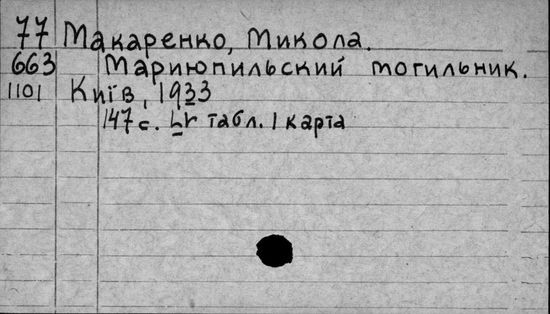 77 Макаренко, Микола.
663 Мариюпильский могильник.
1101 Київ, 1933
147 с. табл. 1 карта